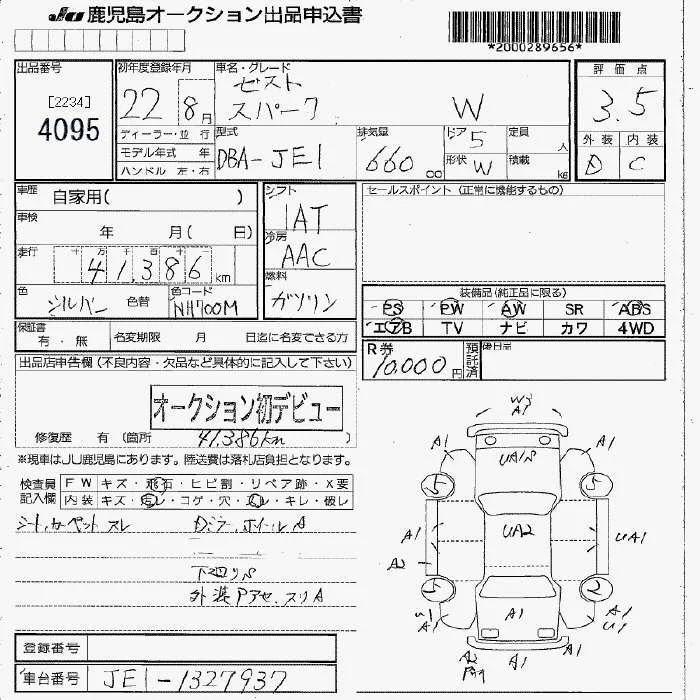 JU 鹿児島オークション出品申込書
*2000289656*
出品番号
[2234]
4095
初年度登録年月
22 8月
ディーラー・並行
モデル年式 年
ハンドル 左・右
車名・グレード
ゼスト
スパーク W
型式
DBA-JE1
排気量
660 cc
ドア 5
形状 W
定員 人
積載 kg
評価点
3.5
外装 内装
D C
車歴 自家用( )
車検
年 月( 日)
走行
十 万 千 百 十
41,386 km
色
シルバー 色替
色コード
NH700M
シフト
IAT
冷房
AAC
燃料
ガソリン
セールスポイント (正常に機能するもの)
装備品(純正品に限る)
PS PW AW SR ABS
エアB TV ナビ カワ 4WD
保証書
有・無
名変期限 月 日迄に名変できる方
R券
10,000円
預託済
後日品
出品店申告欄(不良内容・欠品など具体的に記入して下さい)
オークション初デビュー
修復歴 有(箇所 41.386km )
※現車はJU鹿児島にあります。陸送費は落札店負担となります。
検査員記入欄
FW キズ・飛石・ヒビ割・リペア跡・X要
内装 キズ・汚レ・コゲ・穴・スレ・キレ・破レ
シート,カーペット スレ
D.ミラー,ホイール A
下廻りS
外装 Pアセ.スリA
W3
A1
A1
A1
UA1S
5
5
UA2
A1
UA1
A2
5
2
U1
A1
A1
A1
U1
A2
A1
A1
登録番号
車台番号 JE1-1327937